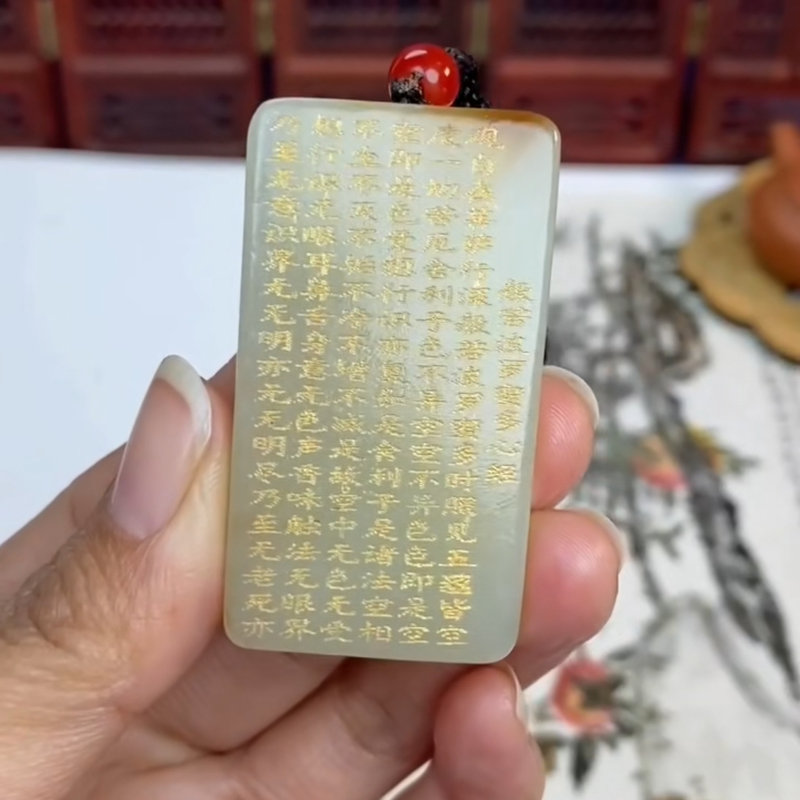 般若波罗蜜多心经
观自在菩萨行深般若波罗蜜多时照见五蕴皆空
度一切苦厄舍利子色不异空空不异色色即是空
空即是色受想行识亦复如是舍利子是諸法空相
不生不灭不垢不净不增不减是故空中无色无受
想行识无眼耳鼻舌身意无色声香味触法无眼界
乃至无意识界无无明亦无无明尽乃至无老死亦